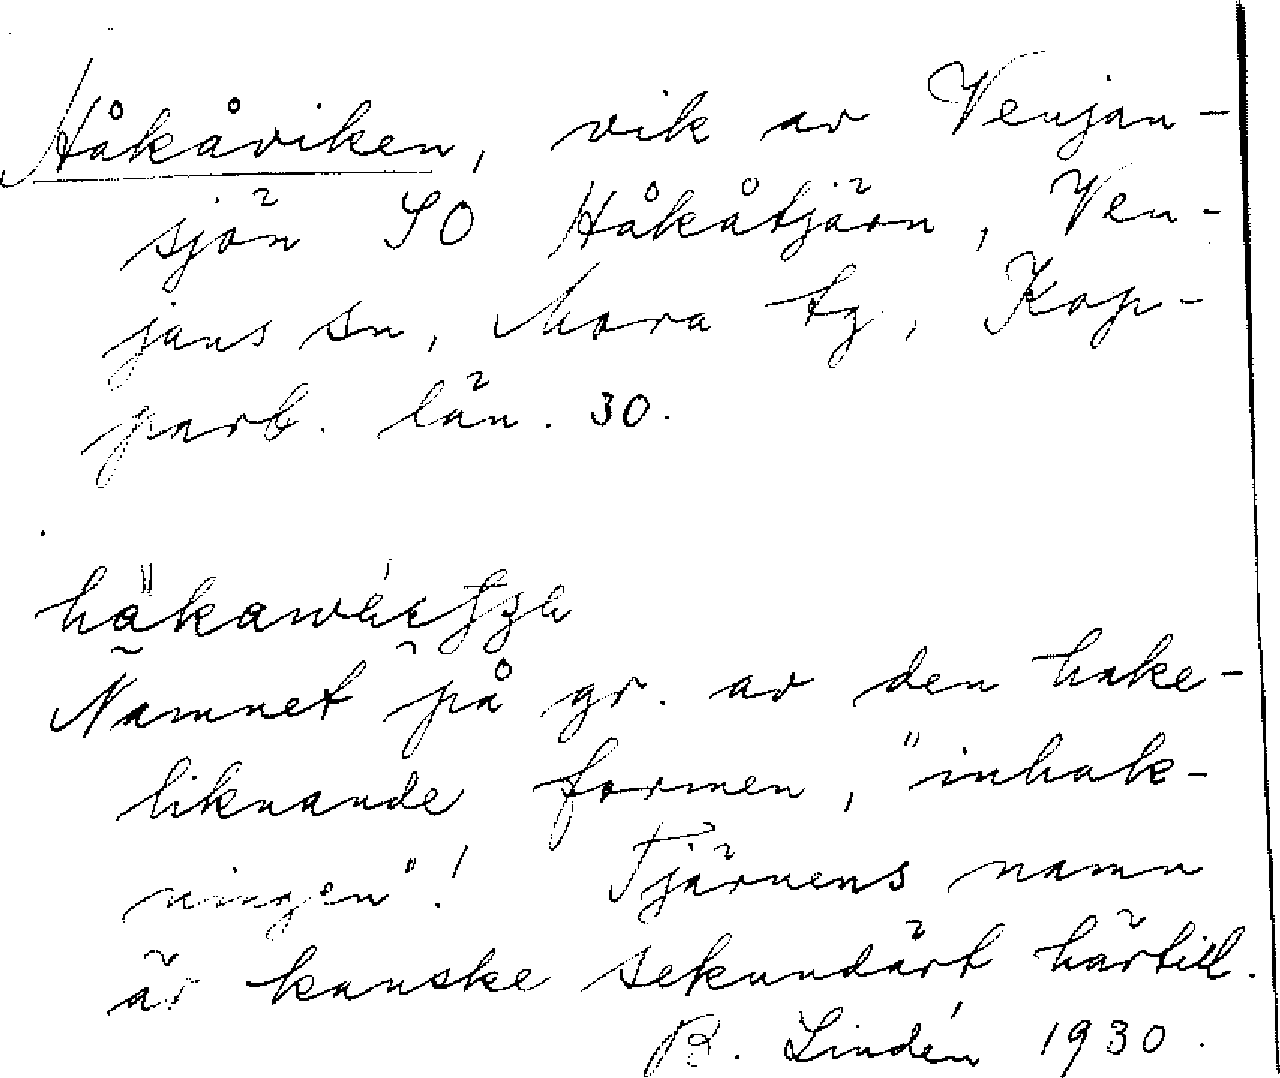 Håkåviken, vik av Venjan-
sjön SO Håkåtjärn, Ven-
jans sn, Mora tg, Kop-
parb. län. 30.
Namnet på gr. av den hake-
liknande formen, "inhak-
ningen"! Tjärnens namn
är kanske sekundärt härtill.
B. Lindén 1930.